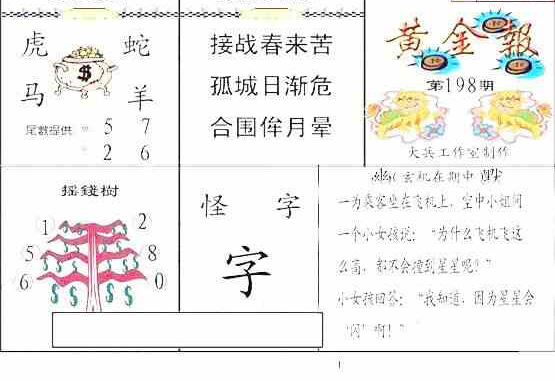 虎 蛇
$
马 羊
尾數提供: 5 7
2 6
接战春来苦
孤城日渐危
合围侔月晕
黄金報
第198期
大兵工作室制作
摇錢樹
1 2
5 8
6 0
怪 字
字
玄机在期中
一为乘客坐在飞机上，空中小姐问
一个小女孩说：“为什么飞机飞这
么高，都不会撞到星星呢？”
小女孩回答：“我知道，因为星星会
‘闪’啊！”